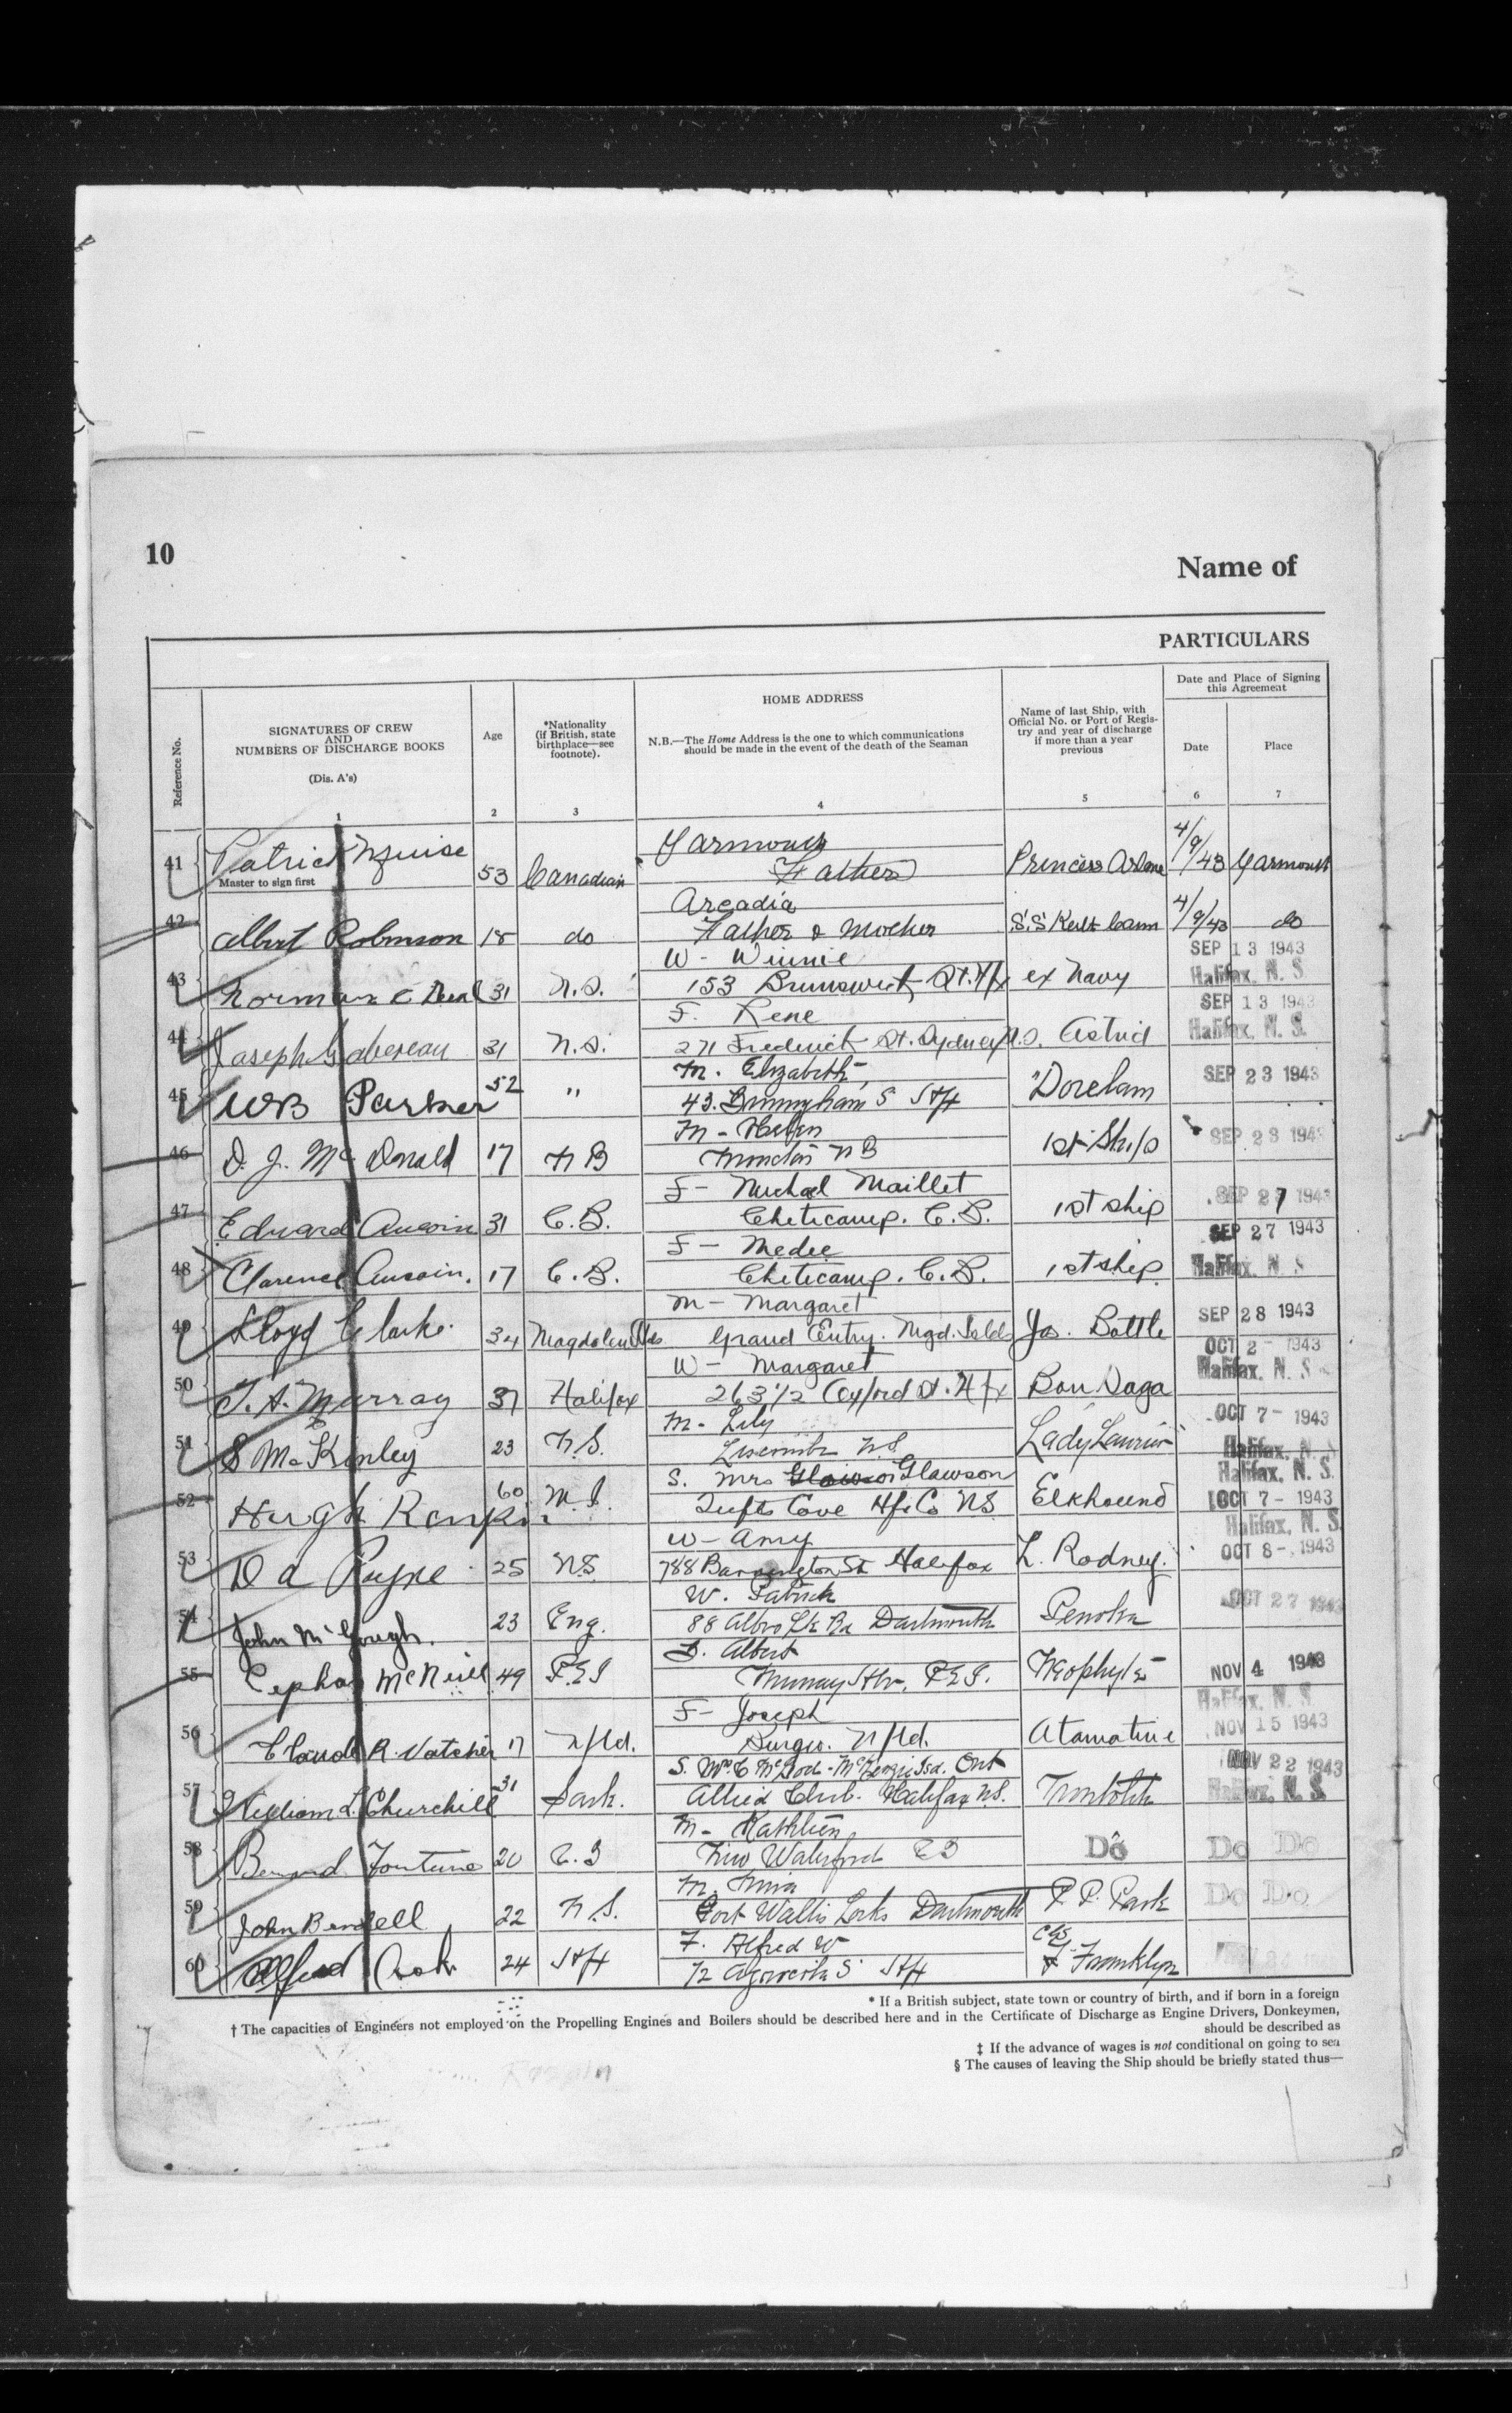 10
Name of
PARTICULARS
Reference No.
SIGNATURES OF CREW
AND
NUMBERS OF DISCHARGE BOOKS
(Dis. A's)
1
Age
2
*Nationality
(if British, state
birthplace—see
footnote).
3
HOME ADDRESS
N.B.—The Home Address is the one to which communications
should be made in the event of the death of the Seaman
4
Name of last Ship, with
Official No. or Port of Regis-
try and year of discharge
if more than a year
previous
5
Date and Place of Signing
this Agreement
Date
6
Place
7
Yarmouth
41 Patrick Master to sign first 53 Canadian Father Princess 4/9/43 Yarmouth
Arcadia
42 Albert Robinson 18 do Father & Mother S.S 4/9/43 do
W - Winnie SEP 13 1943
43 Norman C Deal 31 N.S. 153 Brunswick St. Hfx ex Navy Halifax, N. S.
F. Rene SEP 13 1943
44 Joseph Gabereau 31 N.S. 271 Frederick St. Sydney N.S. Astrid Halifax, N. S.
M. Elizabeth
45 WB Parker 52 " 43 S Hfx Dorelam SEP 23 1943
M - Helen
46 D. J. McDonald 17 N B Moncton N B 1st Ship SEP 23 1943
F - Michael Maillet
47 Edward Aucoin 31 C.B. Cheticamp. C.B. 1st ship SEP 27 1943
F - Medee SEP 27 1943
48 Clarence Aucoin. 17 C.B. Cheticamp. C.B. 1st ship Halifax, N. S.
M - Margaret
49 Lloyd Clarke 34 Magdalen Ils Grand Entry. Mgd. Islds Jas. Battle SEP 28 1943
W - Margaret OCT 2 - 1943
Halifax, N. S.
50 T. A. Murray 37 Halifax 263 1/2 Oxford St. Hfx Bon
M - Lily OCT 7 - 1943
51 S McKinley 23 N.S. Liscomb N.S. Lady Laurier Halifax, N. S.
S. Mrs Glawson Halifax, N. S.
52 Hugh Rankin 60 N.S. Tufts Cove Hfx Co NS Elkhound OCT 7 - 1943
W - Amy Halifax, N. S.
53 D A Payne 25 N.S. 788 Barrington St Halifax L. Rodney OCT 8 - 1943
W. Patrick
54 John McGough. 23 Eng. 88 Albro Lk Rd Dartmouth OCT 27 1943
B. Albert
55 Cephas McNeill 49 P.E.I Murray Hbr. P.E.I. NOV 4 1943
F - Joseph Halifax, N. S.
56 Claude R. Vatcher 17 Nfld. Burgeo. Nfld. NOV 15 1943
S. Mrs C Ont NOV 22 1943
57 William L. Churchill 31 Sask. Allied Club. Halifax N.S. Halifax, N. S.
M - Kathleen
58 Bernard Fortune 20 C.B New Waterford CB Do Do Do
M. Nina
59 John Bendell 22 N.S. Port Wallis Locks Dartmouth P. P. Park Do Do
F. Alfred W Chs
60 Alfred Cook 24 Hfx 72 Agricola S Hfx Franklyn
* If a British subject, state town or country of birth, and if born in a foreign
† The capacities of Engineers not employed on the Propelling Engines and Boilers should be described here and in the Certificate of Discharge as Engine Drivers, Donkeymen,
should be described as
‡ If the advance of wages is not conditional on going to sea
§ The causes of leaving the Ship should be briefly stated thus—